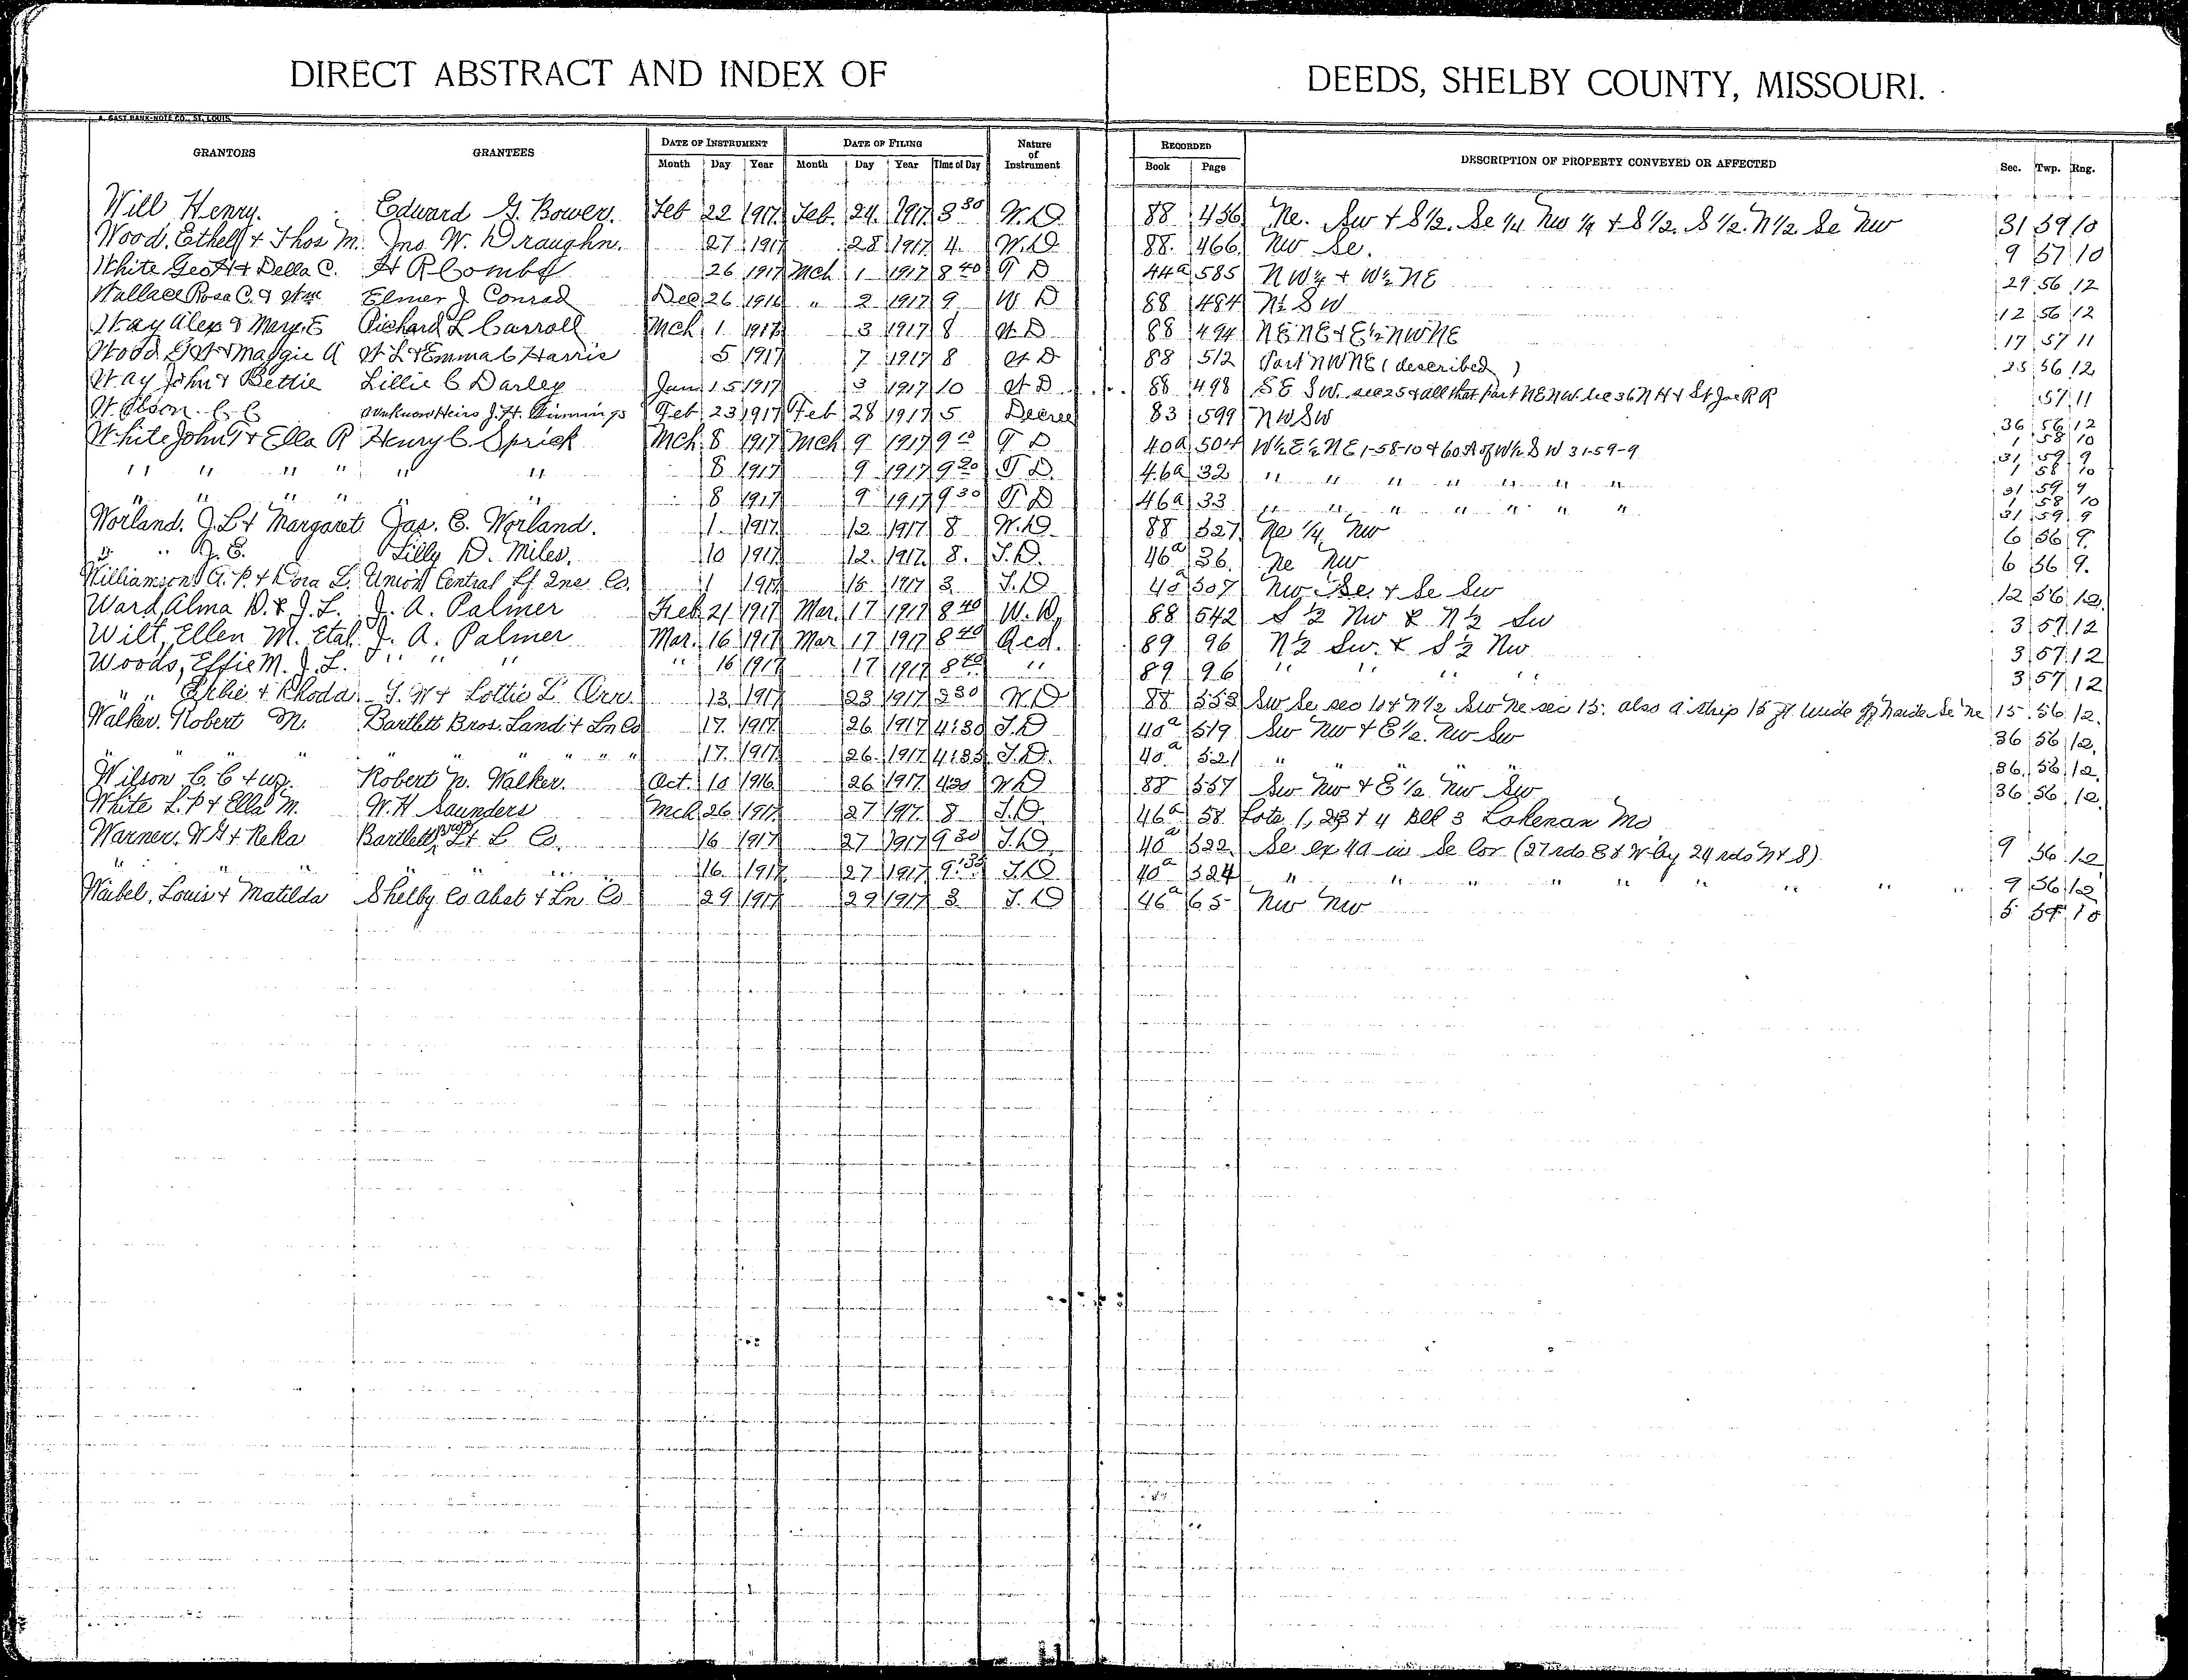 DIRECT ABSTRACT AND INDEX OF DEEDS, SHELBY COUNTY, MISSOURI.
A. GAST BANK-NOTE CO., ST. LOUIS.
GRANTORS GRANTEES DATE OF INSTRUMENT DATE OF FILING Nature of Instrument RECORDED DESCRIPTION OF PROPERTY CONVEYED OR AFFECTED Sec. Twp. Rng.
Month Day Year Month Day Year Time of Day Book Page
Will Henry. Edward G. Bower. Feb 22 1917 Feb. 24. 1917 8 30 W.D. 88 456 Ne. Sw + S 1/2. Se 1/4 Nw 1/4 + S 1/2. S 1/2. N 1/2 Se Nw 31 59 10
Wood, Ethel + Thos M. Jno. W. Draughn. 27 1917 28 1917 4. W.D. 88. 466 Nw Se. 9 57 10
White Geo H + Della C. H R Combs 26 1917 Mch 1 1917 8 40 T D 44a 585 NW 1/4 + W 1/2 NE 29 56 12
Wallace Rosa C. & Wm Elmer J. Conrad Dec 26 1916 " 2 1917 9 W D 88 484 N 1/2 SW 12 56 12
Way Alex & Mary E Richard L Carroll Mch 1 1917 3 1917 8 W D 88 494 NE NE + E 1/2 NW NE 17 57 11
Wood + Maggie A W L + Emma C Harris 5 1917 7 1917 8 W D 88 512 Part NW NE (described) 25 56 12
Way John + Bettie Lillie C Darley Jan 15 1917 3 1917 10 W D 88 498 SE SW. sec 25 + all that part NE NW sec 36 N H + St Joe R R 57 11
Wilson C C unknown Heirs J. H. Feb 23 1917 Feb 28 1917 5 Decree 83 599 NW SW 36 56 12
White John T + Ella R Henry C Sprick Mch 8 1917 Mch 9 1917 9 10 T D 40a 504 W 1/2 E 1/2 NE 1-58-10 + 60 A of W 1/2 S W 31-59-9 1 58 10
31 59 9
" " " " " " 8 1917 9 1917 9 20 T D. 46a 32 " " " " " " " 1 58 10
31 59 9
" " " " " " 8 1917 9 1917 9 30 T D 46a 33 " " " " " " " 1 58 10
31 59 9
Worland, J. L + Margaret Jas. E. Worland. 1 1917 12 1917 8 W.D. 88 527 Ne 1/4 Nw 6 56 9
" " J. E. Lilly D. Miles. 10 1917 12. 1917 8. T.D. 46a 36. Ne Nw 6 56 9.
Williamson A. P. + Dora L. Union Central Lf Ins Co. 1 1917 15 1917 3 T.D 507 Nw Se + Se Sw 12 56 12
Ward, Alma D. & J. L. J. A. Palmer Feb 21 1917 Mar. 17 1917 8 40 W. D. 88 542 S 1/2 Nw & N 1/2 Sw 3 57 12
Wilt, Ellen M. Etal J. A. Palmer Mar. 16 1917 Mar 17 1917 8 40 Acd. 89 96 N 1/2 Sw. & S 1/2 Nw 3 57 12
Woods, Effie M. J. L. " " " " 16 1917 17 1917 8 40 " 89 96 " " " " 3 57 12
" " + Rhoda. + Lottie L Orr. 13 1917 23 1917 W.D 88 553 Sw Se sec 10 + N 1/2 Sw Ne sec 15. also a strip 15 ft wide off Se Ne 15 56 12.
Walker. Robert N. Bartlett Bros. Land + Ln Co 17 1917 26 1917 4:30 T.D 40a 519 Sw Nw + E 1/2. Nw Sw 36 56 12.
" " " " " " " 17 1917 26 1917 4:35 T.D. 40a 521 " " " " 36 56 12.
Wilson C. C + wf. Robert N. Walker. Oct. 10 1916 26 1917 4:30 W D 88 557 Sw Nw + E 1/2 Nw Sw 36 56 12.
White L. P + Ella M. W. H Saunders Mch 26 1917 27 1917 8 T.D. 46a 58 Lots 1, 2, 3 + 4 Blk 3 Lakenan Mo
Warner, W H + Reka Bartlett Bros Ld L Co. 16 1917 27 1917 9 30 T.D 40a 522 Se ex 4a in Se Cor (27 rds E & W by 24 rds N & S) 9 56 12
" " " " " 16 1917 27 1917 9:35 T.D. 40a 524 " " " " " " " " 9 56 12
Waibel, Louis + Matilda Shelby Co Abst + Ln Co 29 1917 29 1917 3 T.D 46a 65 Nw Nw 5 10